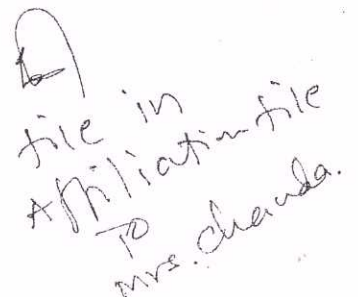 file in
Affiliation file
To
mrs. chawda.